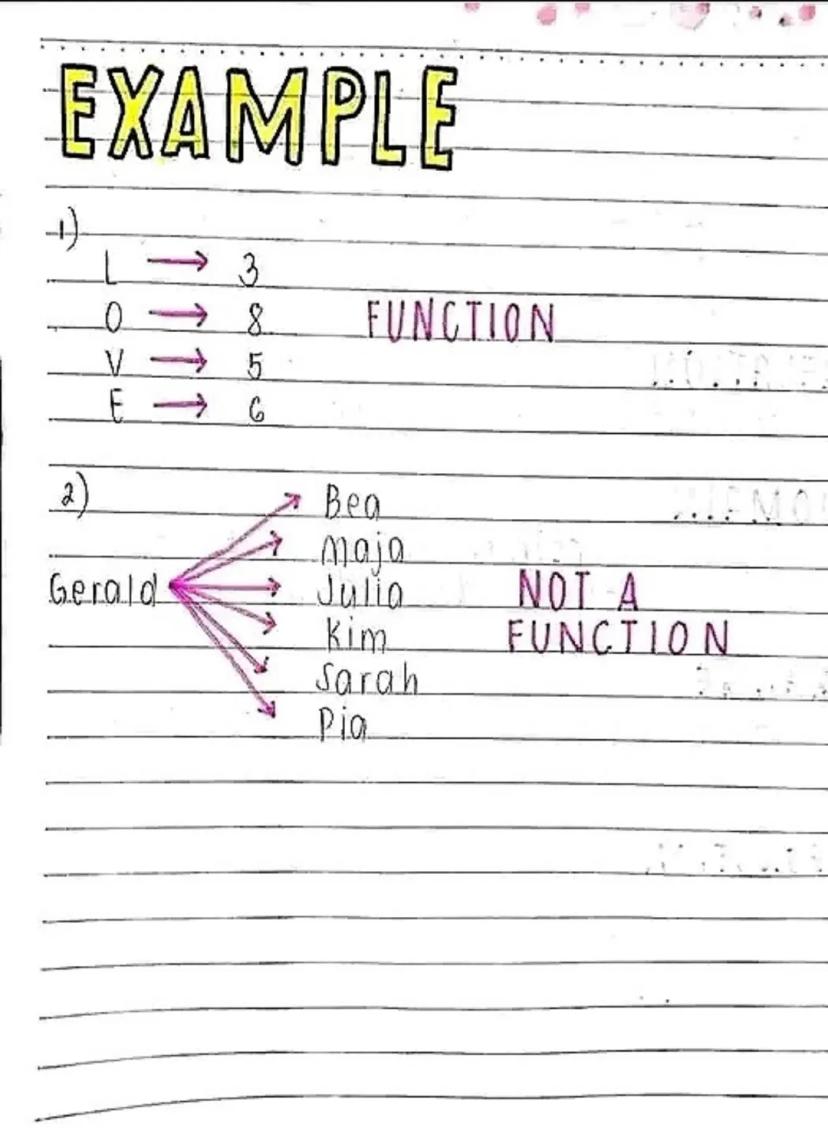 EXAMPLE
1)
L → 3
O → 8 FUNCTION
V → 5
E → 6
2)
Bea
Maja
Gerald Julia NOT A
Kim FUNCTION
Sarah
Pia